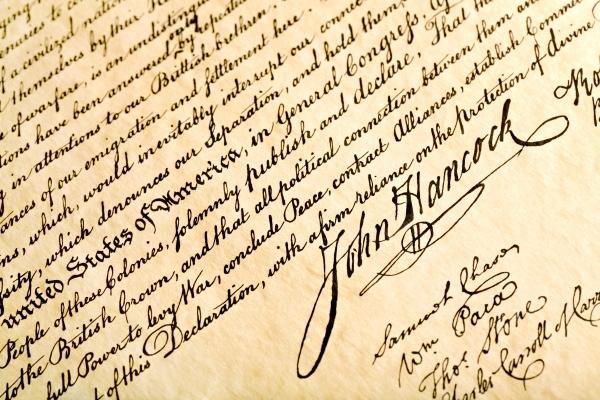 of a civilized nation
themselves by their
of warfare, is an undistinguished
have been answered only by repeated
in attentions to our British brethren.
ances of our emigration and settlement here.
ns, which, would inevitably interrupt our connec
sity, which denounces our Separation, and hold them,
united States of America, in General Congress,
People of these Colonies, solemnly publish and declare, That
to the British Crown, and that all political connection between them an
full Power to levy War, conclude Peace, contract Alliances, establish Comme
of this Declaration, with a firm reliance on the protection of divine
John Hancock
Samuel Chase
Wm Paca
Thos. Stone
Charles Carroll of Carr